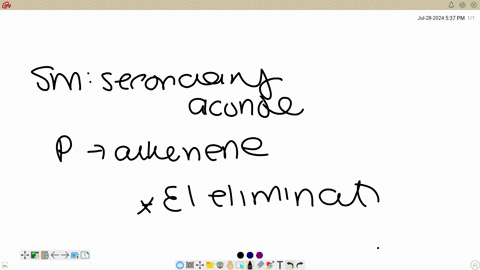 Jul-28-2024 5:37 PM 1/1
SM: secondary
P → alkenene
* E1 eliminat